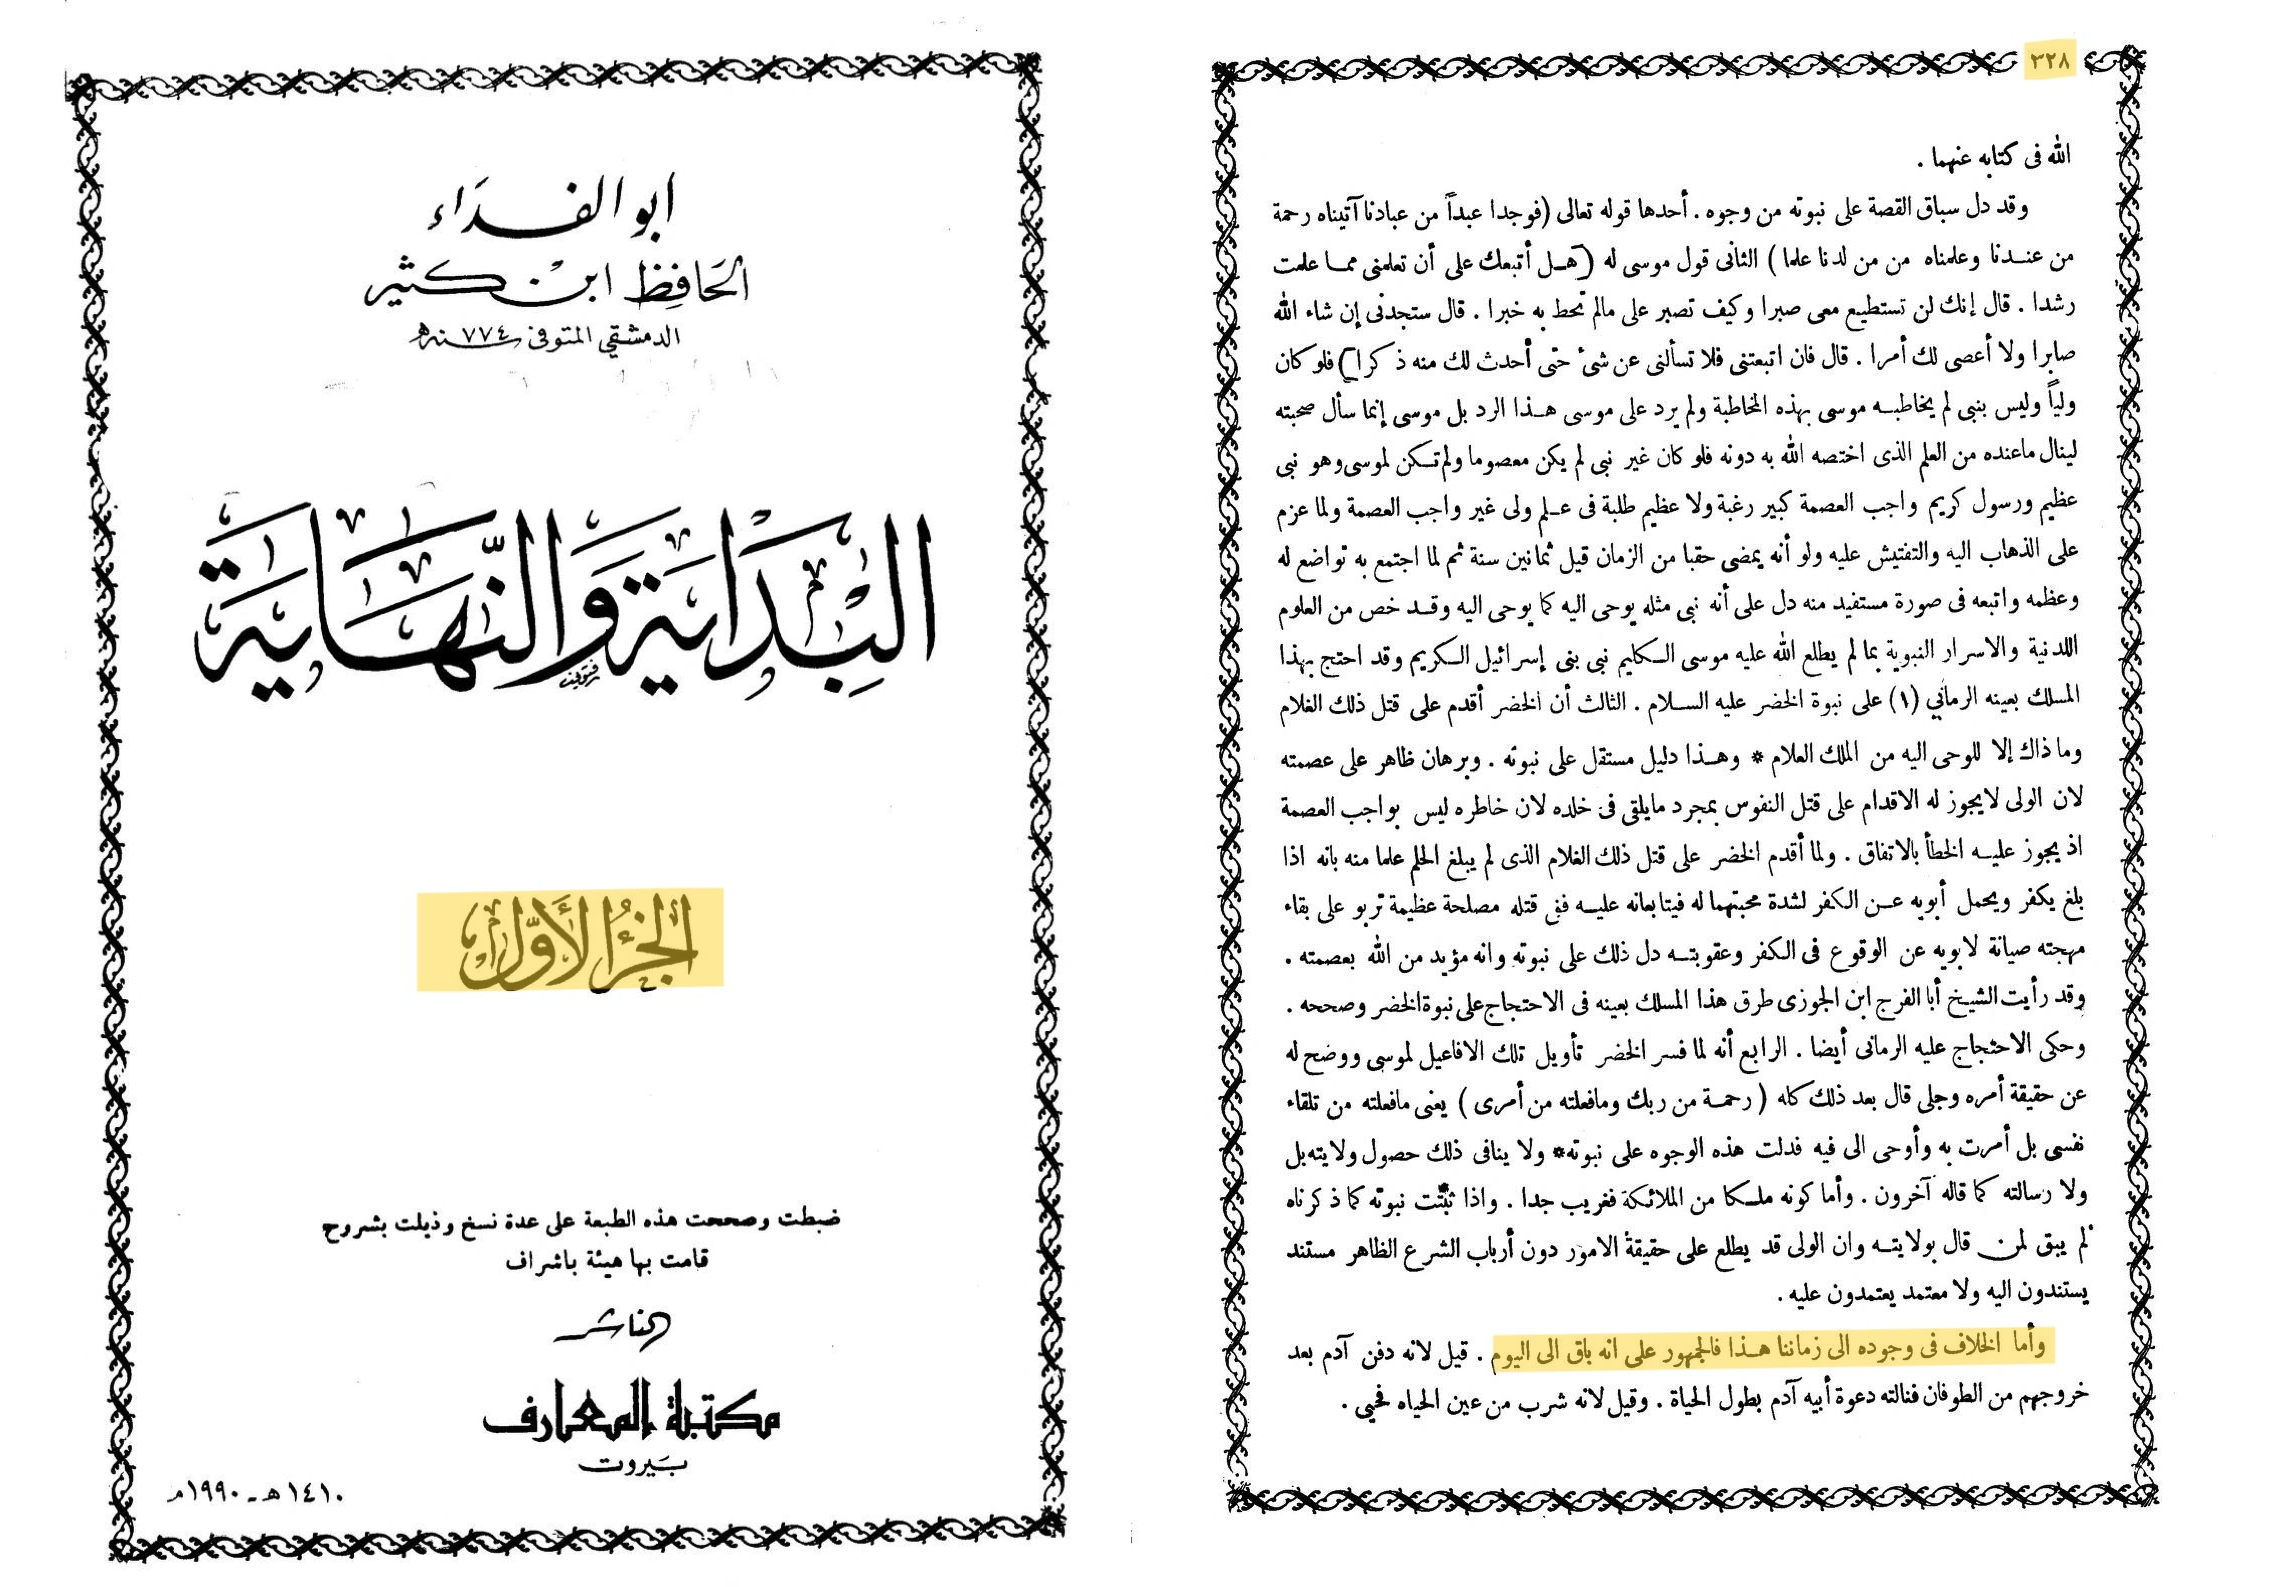 ابو الفداء
الحافظ ابن كثير
الدمشقي المتوفى سنة ٧٧٤ ھ
البداية والنهاية
الجزء الأول
ضبطت وصححت هذه الطبعة على عدة نسخ وذيلت بشروح
قامت بها هيئة باشراف
الناشر
مكتبة المعارف
بيروت
١٤١٠ هـ - ١٩٩٠ م
٣٢٨
الله فى كتابه عنهما .
وقد دل سياق القصة على نبوته من وجوه . أحدها قوله تعالى (فوجدا عبداً من عبادنا آتيناه رحمة
من عندنا وعلمناه من من لدنا علما ) الثانى قول موسى له (هل أتبعك على أن تعلمنى مما علمت
رشدا . قال إنك لن تستطيع معى صبرا وكيف تصبر على مالم تحط به خبرا . قال ستجدنى إن شاء الله
صابرا ولا أعصى لك أمرا . قال فان اتبعتنى فلا تسألنى عن شئ حتى أحدث لك منه ذكرا) فلو كان
ولياً وليس بنبى لم يخاطبه موسى بهذه المخاطبة ولم يرد على موسى هذا الرد بل موسى إنما سأل صحبته
لينال ماعنده من العلم الذى اختصه الله به دونه فلو كان غير نبى لم يكن معصوما ولم تكن لموسى وهو نبى
عظيم ورسول كريم واجب العصمة كبير رغبة ولا عظيم طلبة فى علم ولى غير واجب العصمة ولما عزم
على الذهاب اليه والتفتيش عليه ولو أنه يمضى حقبا من الزمان قيل ثمانين سنة ثم لما اجتمع به تواضع له
وعظمه واتبعه فى صورة مستفيد منه دل على أنه نبى مثله يوحى اليه كما يوحى اليه وقد خص من العلوم
اللدنية والاسرار النبوية بما لم يطلع الله عليه موسى الكليم نبى بنى إسرائيل الكريم وقد احتج بهذا
المسلك بعينه الرماني (١) على نبوة الخضر عليه السلام . الثالث أن الخضر أقدم على قتل ذلك الغلام
وما ذاك إلا للوحى اليه من الملك العلام * وهذا دليل مستقل على نبوته . وبرهان ظاهر على عصمته
لان الولى لايجوز له الاقدام على قتل النفوس بمجرد مايلقى فى خلده لان خاطره ليس بواجب العصمة
اذ يجوز عليه الخطأ بالاتفاق . ولما أقدم الخضر على قتل ذلك الغلام الذى لم يبلغ الحلم علما منه بانه اذا
بلغ يكفر ويحمل أبويه عن الكفر لشدة محبتهما له فيتابعانه عليه ففى قتله مصلحة عظيمة تربو على بقاء
مهجته صيانة لابويه عن الوقوع فى الكفر وعقوبته دل ذلك على نبوته وانه مؤيد من الله بعصمته .
وقد رأيت الشيخ أبا الفرج ابن الجوزى طرق هذا المسلك بعينه فى الاحتجاج على نبوة الخضر وصححه .
وحكى الاحتجاج عليه الرمانى أيضا . الرابع أنه لما فسر الخضر تأويل تلك الافاعيل لموسى ووضح له
عن حقيقة أمره وجلى قال بعد ذلك كله ( رحمة من ربك ومافعلته من أمرى ) يعنى مافعلته من تلقاء
نفسى بل أمرت به وأوحى الى فيه فدلت هذه الوجوه على نبوته* ولا ينافى ذلك حصول ولايته بل
ولا رسالته كما قاله آخرون . وأما كونه ملكا من الملائكة فغريب جدا . واذا ثبتت نبوته كما ذكرناه
لم يبق لمن قال بولايته وان الولى قد يطلع على حقيقة الامور دون أرباب الشرع الظاهر مستند
يستندون اليه ولا معتمد يعتمدون عليه .
وأما الخلاف فى وجوده الى زماننا هذا فالجمهور على انه باق الى اليوم . قيل لانه دفن آدم بعد
خروجهم من الطوفان فنالته دعوة أبيه آدم بطول الحياة . وقيل لانه شرب من عين الحياه فحيى .